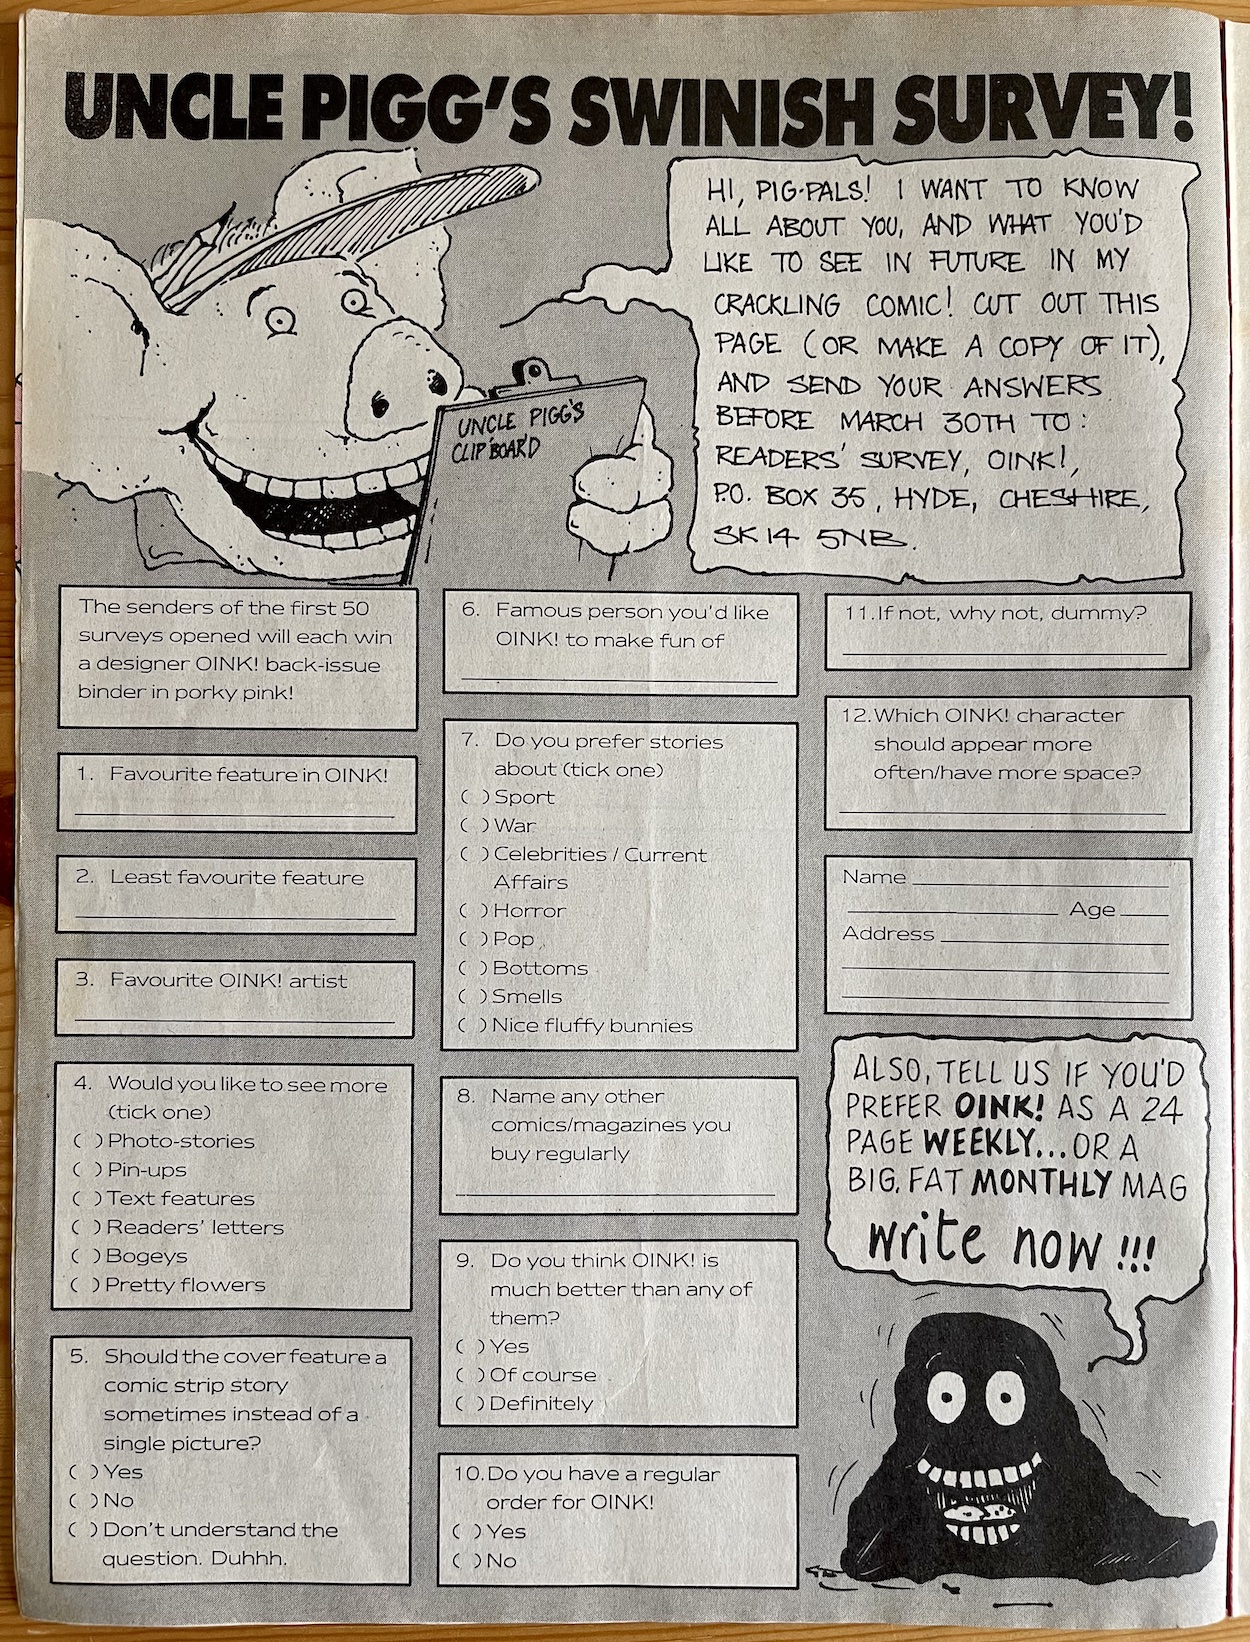 UNCLE PIGG'S SWINISH SURVEY!
HI, PIG-PALS! I WANT TO KNOW
ALL ABOUT YOU, AND WHAT YOU'D
LIKE TO SEE IN FUTURE IN MY
CRACKLING COMIC! CUT OUT THIS
PAGE (OR MAKE A COPY OF IT),
AND SEND YOUR ANSWERS
BEFORE MARCH 30TH TO:
READERS' SURVEY, OINK!,
P.O. BOX 35, HYDE, CHESHIRE,
SK14 5NB.
UNCLE PIGG'S
CLIP'BOAR'D
The senders of the first 50
surveys opened will each win
a designer OINK! back-issue
binder in porky pink!
1. Favourite feature in OINK!
2. Least favourite feature
3. Favourite OINK! artist
4. Would you like to see more
(tick one)
( ) Photo-stories
( ) Pin-ups
( ) Text features
( ) Readers' letters
( ) Bogeys
( ) Pretty flowers
5. Should the cover feature a
comic strip story
sometimes instead of a
single picture?
( ) Yes
( ) No
( ) Don't understand the
question. Duhhh.
6. Famous person you'd like
OINK! to make fun of
7. Do you prefer stories
about (tick one)
( ) Sport
( ) War
( ) Celebrities / Current
Affairs
( ) Horror
( ) Pop
( ) Bottoms
( ) Smells
( ) Nice fluffy bunnies
8. Name any other
comics/magazines you
buy regularly
9. Do you think OINK! is
much better than any of
them?
( ) Yes
( ) Of course
( ) Definitely
10. Do you have a regular
order for OINK!
( ) Yes
( ) No
11. If not, why not, dummy?
12. Which OINK! character
should appear more
often/have more space?
Name
Age
Address
ALSO, TELL US IF YOU'D
PREFER OINK! AS A 24
PAGE WEEKLY...OR A
BIG, FAT MONTHLY MAG
write now!!!